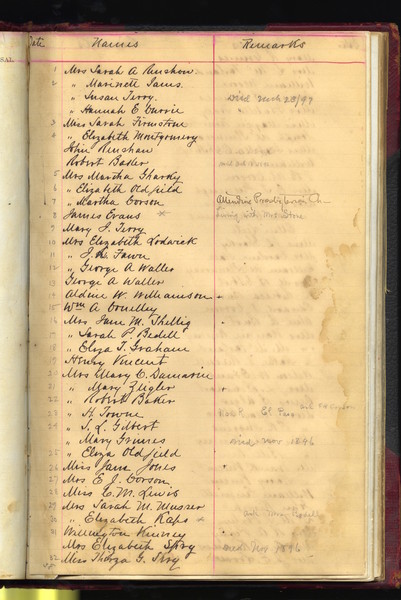 Date Names Remarks
1 Mrs Sarah A Renshaw
2 " Marinett Iams.
" Susan Terry. Died Mch 23/97
" Hannah E Currie
3 Miss Sarah Firmstone
4 " Elizabeth Montgomery
John Renshaw
Robert Baker
5 Mrs Martha Gharky
6 " Elizabeth Oldfield
7 " Martha Corson Attending Presbyterian Ch
8 James Evans × Living with Mrs Stone
9 Mary J. Terry
10 Mrs Elizabeth Lodwick
11 " J. Fawn
12 " George A Waller
13 George A Waller
14 Aldine W. Williamson
15 Wm A Connolley
16 Mrs Jane M. Thillig
17 " Sarah P. Bedell
18 " Eliza T. Graham
19 Henry Vincent
20 Mrs Mary C. Damarin
21 " Mary Zeigler
22 " Robert Baker
23 " H. Towne
24 " S. L. Gilbert
" Mary Grimes Died Nov 1896
25 " Eliza Oldfield
26 Miss Jane Jones
27 Mrs E. J. Corson
28 Miss C. M. Lewis
29 Mrs Sarah M. Musser
30 " Elizabeth Raps ×
31 Willington Kinney
Mrs Elizabeth Spry Died Nov 1896
32 Miss Thirza G. Spry